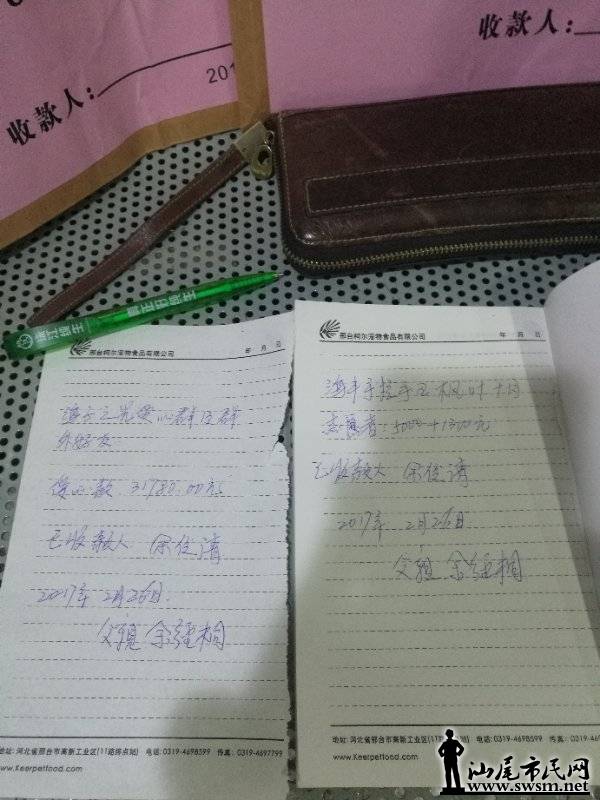 收款人：
201
收款人：
珠江绿王 真正打假王
邢台柯尔宠物食品有限公司
年 月 日
爱心群及群
外好友
爱心款 31780.00元
已收款人 余位清
2017年2月26日
父亲
地址：河北省邢台市高新工业区(11路终点站) 电话：0319-4698599 传真：0319-4697799
www.Keerpetfood.com
邢台柯尔宠物食品有限公司
年 月 日
海丰手拉手
志愿者：5000+1300元
已收款人 余位清
2017年 2月26日
父亲
地址：河北省邢台市高新工业区(11路终点站) 电话：0319-4698599 传真：0319
www.Keerpetfood.com
汕尾市民网
www.swsm.net